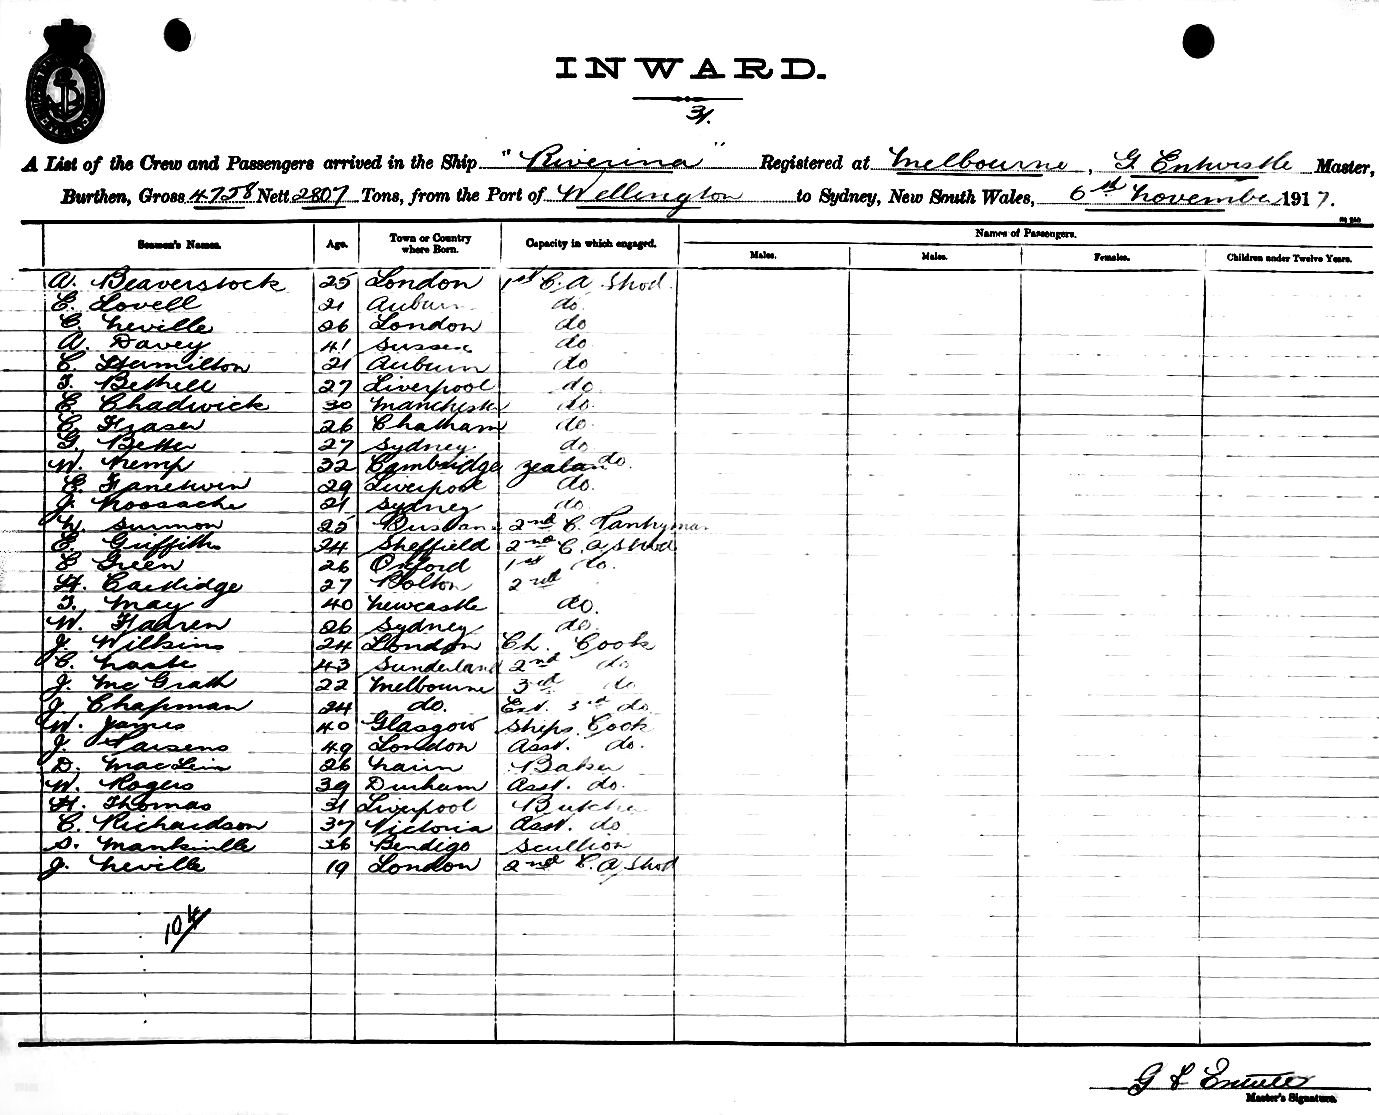 INWARD.
31.
A List of the Crew and Passengers arrived in the Ship "Riverina" Registered at Melbourne, G Entwistle Master,
Burthen, Gross 4758 Nett 2807 Tons, from the Port of Wellington to Sydney, New South Wales, 6th November 1917.
Seamen's Names. Age. Town or Country where Born. Capacity in which engaged. Names of Passengers.
Males. Males. Females. Children under Twelve Years.
A. Beaverstock 25 London 1st C. A. Stwd.
C. Lovell 21 Auburn do.
C. Neville 26 London do
A. Davey 41 Sussex do
C. Hamilton 21 Auburn do
T. Bethell 27 Liverpool do.
E. Chadwick 30 Manchester do.
C. Fraser 26 Chatham do.
G. Better 27 Sydney. do
W. Kemp 32 Cambridge Zealand do.
E. 29 Liverpool do.
J. 21 Sydney do.
25 2nd C. Pantryman.
E. Griffiths 24 Sheffield 2nd C. A. Stwd
C Green 26 Oxford 1st do.
H. Cartlidge 27 Bolton 2nd
T. May 40 Newcastle do.
W. 26 Sydney do.
J. Wilkins 24 London Ch. Cook
C. 43 Sunderland 2nd do
J. McGrath 22 Melbourne 3rd do
J. Chapman 24 do. Ext. 3rd do.
W. James 40 Glasgow Ships Cook
J. Parsens 49 London Asst. do.
D. 26 Nairn Baker
W. Rogers 39 Durham Asst. do.
H. Thomas 31 Liverpool Butcher
C. Richardson 37 Victoria Asst. do
S. 36 Bendigo Scullion
J. Neville 19 London 2nd C. A. Stwd
104
Master's Signature.